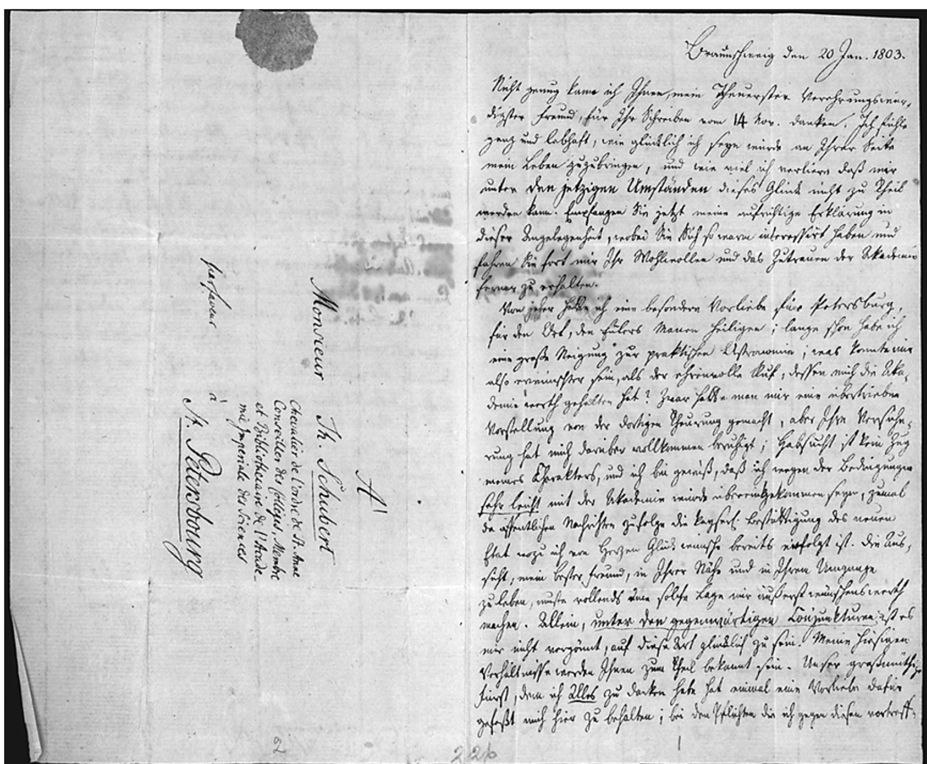 Braunschweig den 20 Jan. 1803.
Nicht genug kann ich Ihnen, mein Theuerster Verehrungswür-
digster Freund, für Ihr Schreiben vom 14 Nov. danken. Ich fühle
ganz und lebhaft, wie glücklich ich seyn würde an Ihrer Seite
mein Leben zuzubringen, und wie viel ich verliere daß mir
unter den jetzigen Umständen dieses Glück nicht zu Theil
werden kann. Empfangen Sie jetzt meine aufrichtige Erklärung in
dieser Angelegenheit, wobei Sie Sich so warm interessirt haben und
fahren Sie fort mir Ihr Wohlwollen und das Zutrauen der Akademie
ferner zu erhalten.
Von jeher hatte ich eine besondere Vorliebe für Petersburg,
für den Ort, den Eulers Manen heiligen; lange schon habe ich
eine große Neigung zur praktischen Astronomie; was konnte mir
also erwünschter sein, als der ehrenvolle Ruf, dessen mich die Aka-
demie werth gehalten hat? Zwar hatte man mir eine übertriebene
Vorstellung von der dortigen Theurung gemacht, aber Ihre Versiche-
rung hat mich darüber vollkommen beruhigt; Habsucht ist kein Zug
meines Charakters, und ich bin gewiß, daß ich wegen der Bedingungen
sehr leicht mit der Akademie würde übereingekommen seyn, zumal
da öffentlichen Nachrichten zufolge die kayserl. Bestättigung des neuen
Etat wozu ich von Herzen Glück wünsche bereits erfolgt ist. Die Aus-
sicht, mein bester Freund, in Ihrer Nähe und in Ihrem Umgange
zu leben, mußte vollends eine solche Lage mir äußerst wünschenswerth
machen. Allein, unter den gegenwärtigen Conjunkturen ist es
mir nicht vergönnt, auf diese Art glücklich zu sein. Meine hiesigen
Verhältnisse werden Ihnen zum Theil bekannt sein. Unser großmüthiger
Fürst, dem ich Alles zu danken habe hat einmal eine Vorliebe dafür
gefaßt mich hier zu behalten; bei den Pflichten die ich gegen diesen vortreff-
A
Monsieur Th. Schubert
Chevalier de l'ordre de St. Anne
Conseiller des Colleges, Membre
et Bibliothecaire de l'Acade-
mie Imperiale des Sciences
à
St. Petersbourg
par faveur
2
226
1